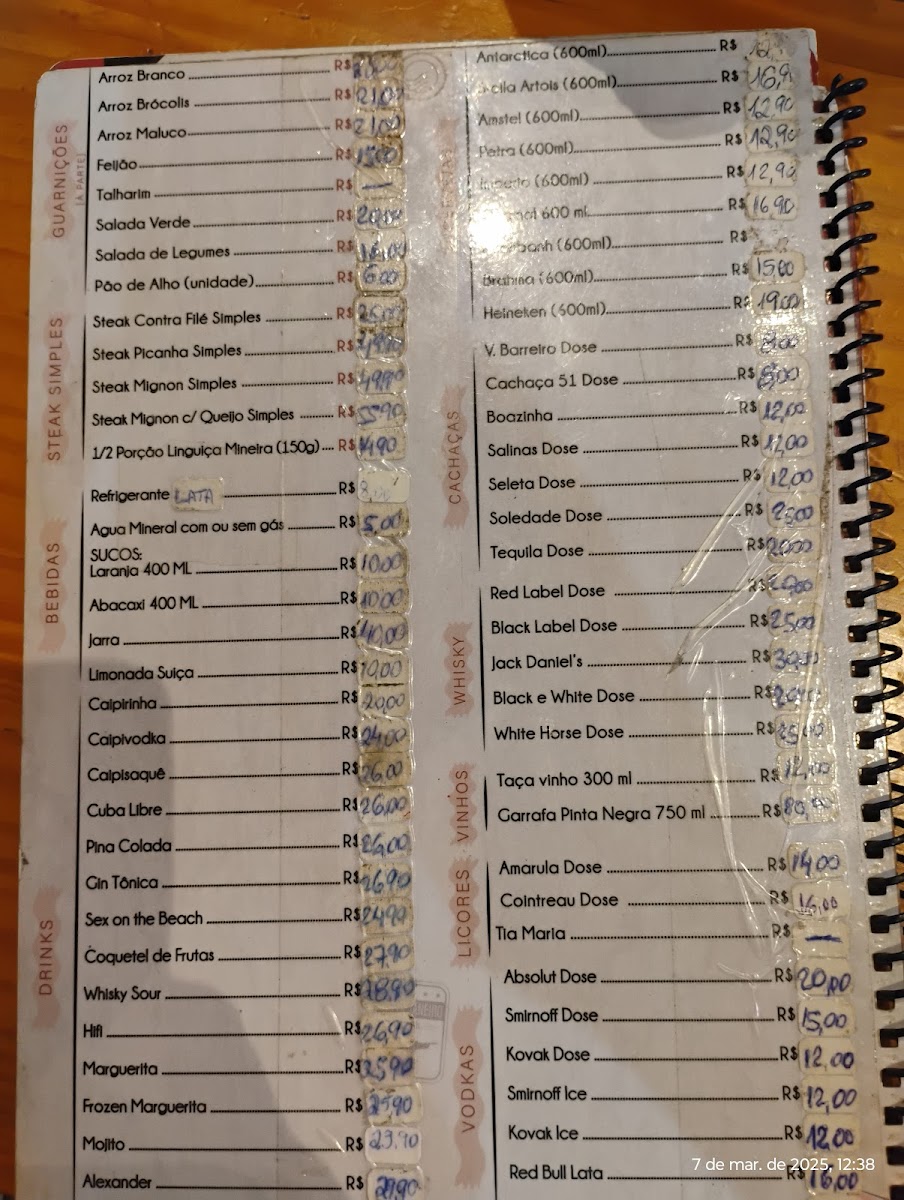 GUARNIÇÕES
(A PARTE)
Arroz Branco R$
Arroz Brócolis R$ 21,00
Arroz Maluco R$ 21,00
Feijão R$ 15,00
Talharim R$ —
Salada Verde R$ 20,00
Salada de Legumes R$
Pão de Alho (unidade) R$ 6,00
STEAK SIMPLES
Steak Contra Filé Simples R$
Steak Picanha Simples R$
Steak Mignon Simples R$ 49,90
Steak Mignon c/ Queijo Simples R$ 55,90
1/2 Porção Linguiça Mineira (150g) R$
BEBIDAS
Refrigerante LATA R$ 8,00
Agua Mineral com ou sem gás R$ 5,00
SUCOS:
Laranja 400 ML R$ 10,00
Abacaxi 400 ML R$ 10,00
Jarra R$ 40,00
Limonada Suiça R$ 10,00
DRINKS
Caipirinha R$ 20,00
Caipivodka R$ 24,00
Caipisaquê R$ 26,00
Cuba Libre R$ 26,00
Pina Colada R$ 26,00
Gin Tônica R$ 26,90
Sex on the Beach R$ 24,90
Coquetel de Frutas R$ 27,90
Whisky Sour R$ 28,90
Hifi R$ 26,90
Marguerita R$ 25,90
Frozen Marguerita R$
Mojito R$ 23,90
Alexander R$ 29,90
Antarctica (600ml) R$
Artois (600ml) R$ 16,9
Amstel (600ml) R$ 12,90
Petra (600ml) R$ 12,90
(600ml) R$ 12,90
600 ml R$ 16,90
(600ml) R$
Brahma (600ml) R$ 15,00
Heineken (600ml) R$ 19,00
CACHAÇAS
V. Barreiro Dose R$ 8,00
Cachaça 51 Dose R$ 8,00
Boazinha R$ 12,00
Salinas Dose R$ 12,00
Seleta Dose R$ 12,00
Soledade Dose R$
Tequila Dose R$ 20,00
WHISKY
Red Label Dose R$
Black Label Dose R$ 25,00
Jack Daniel's R$ 30,00
Black e White Dose R$
White Horse Dose R$ 25,00
VINHOS
Taça vinho 300 ml R$
Garrafa Pinta Negra 750 ml R$
LICORES
Amarula Dose R$ 14,00
Cointreau Dose R$ 16,00
Tia Maria R$ —
VODKAS
Absolut Dose R$ 20,00
Smirnoff Dose R$ 15,00
Kovak Dose R$ 12,00
Smirnoff Ice R$ 12,00
Kovak Ice R$ 12,00
Red Bull Lata R$ 16,00
7 de mar. de 2025, 12:38